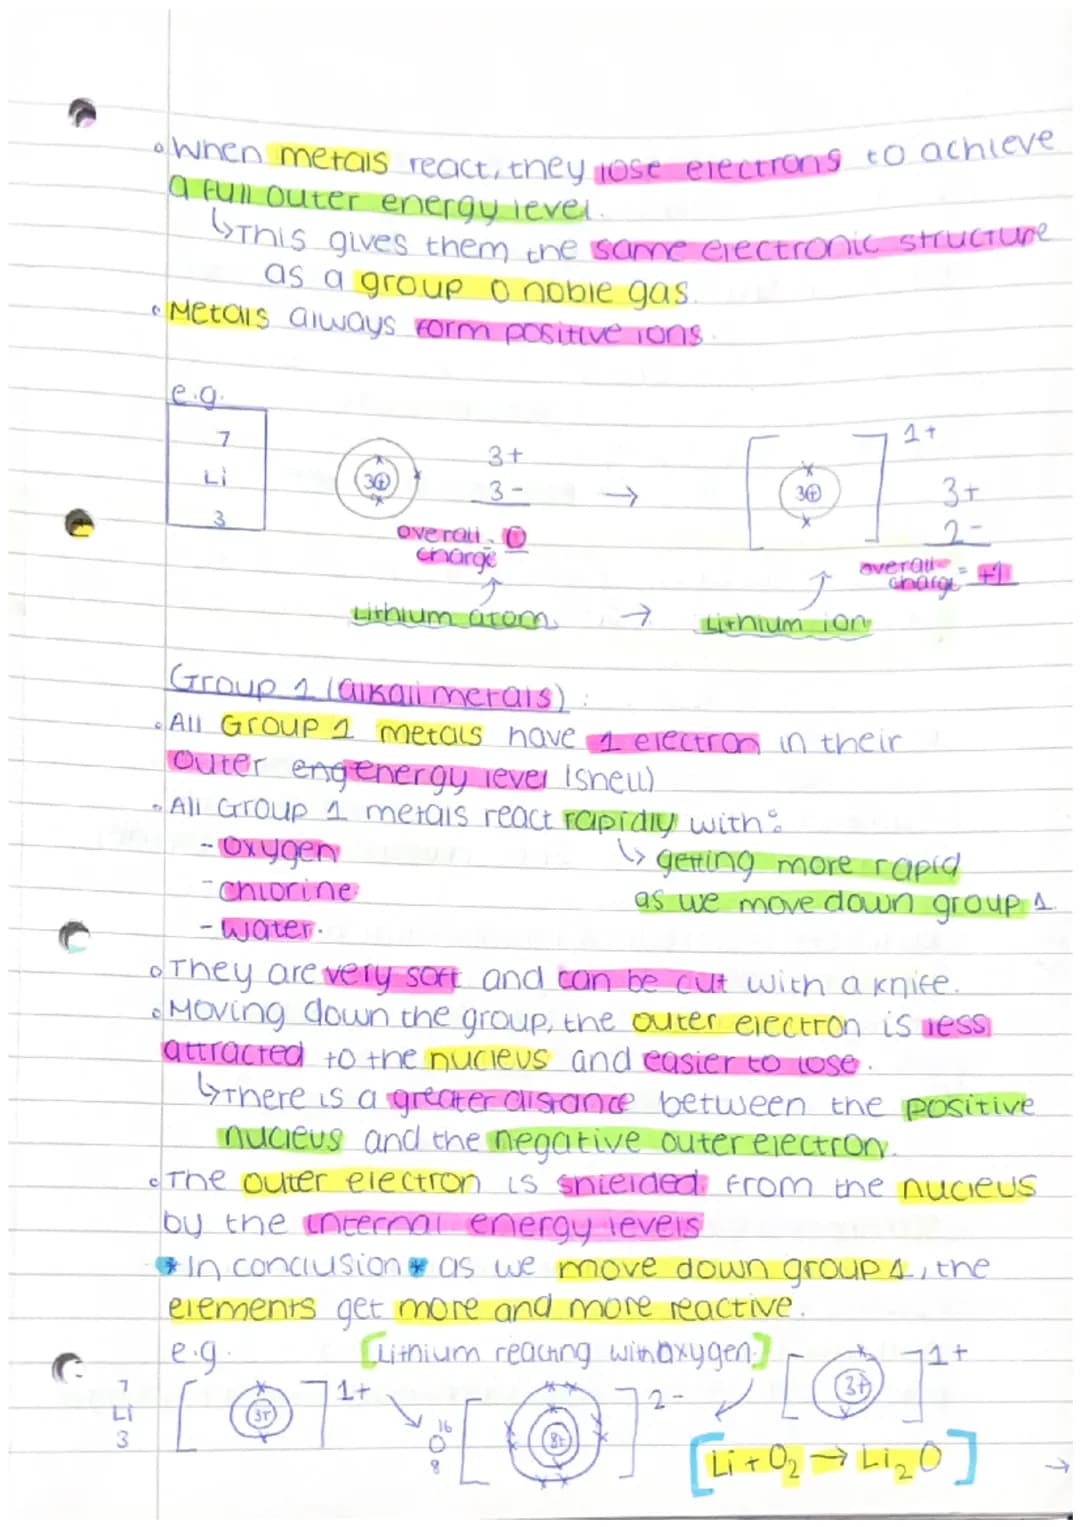 When metals react, they lose electrons to achieve
a full outer energy level.
↳This gives them the same electronic structure
as a group 0 noble gas.
Metals always form positive ions.
e.g.
7
Li
3
3⊕
3+
3-
→
overall = 0
charge
↑
Lithium atom
→
3⊕
1+
3+
2-
overall = +1
charge
↑
Lithium ion
Group 1 (alkali metals):
All Group 1 metals have 1 electron in their
outer eng energy level (shell)
All Group 1 metals react rapidly with:
- oxygen
- chlorine
- water.
↳ getting more rapid
as we move down group 1.
They are very soft and can be cut with a knife.
Moving down the group, the outer electron is less
attracted to the nucleus and easier to lose.
↳There is a greater distance between the positive
nucleus and the negative outer electron.
The outer electron is shielded from the nucleus
by the internal energy levels
*In conclusion* as we move down group 1, the
elements get more and more reactive.
e.g. [Lithium reacting with oxygen.]
7
Li
3
3+
1+
16
O
8
8+
2-
3+
1+
[Li + O₂ → Li₂O]
→